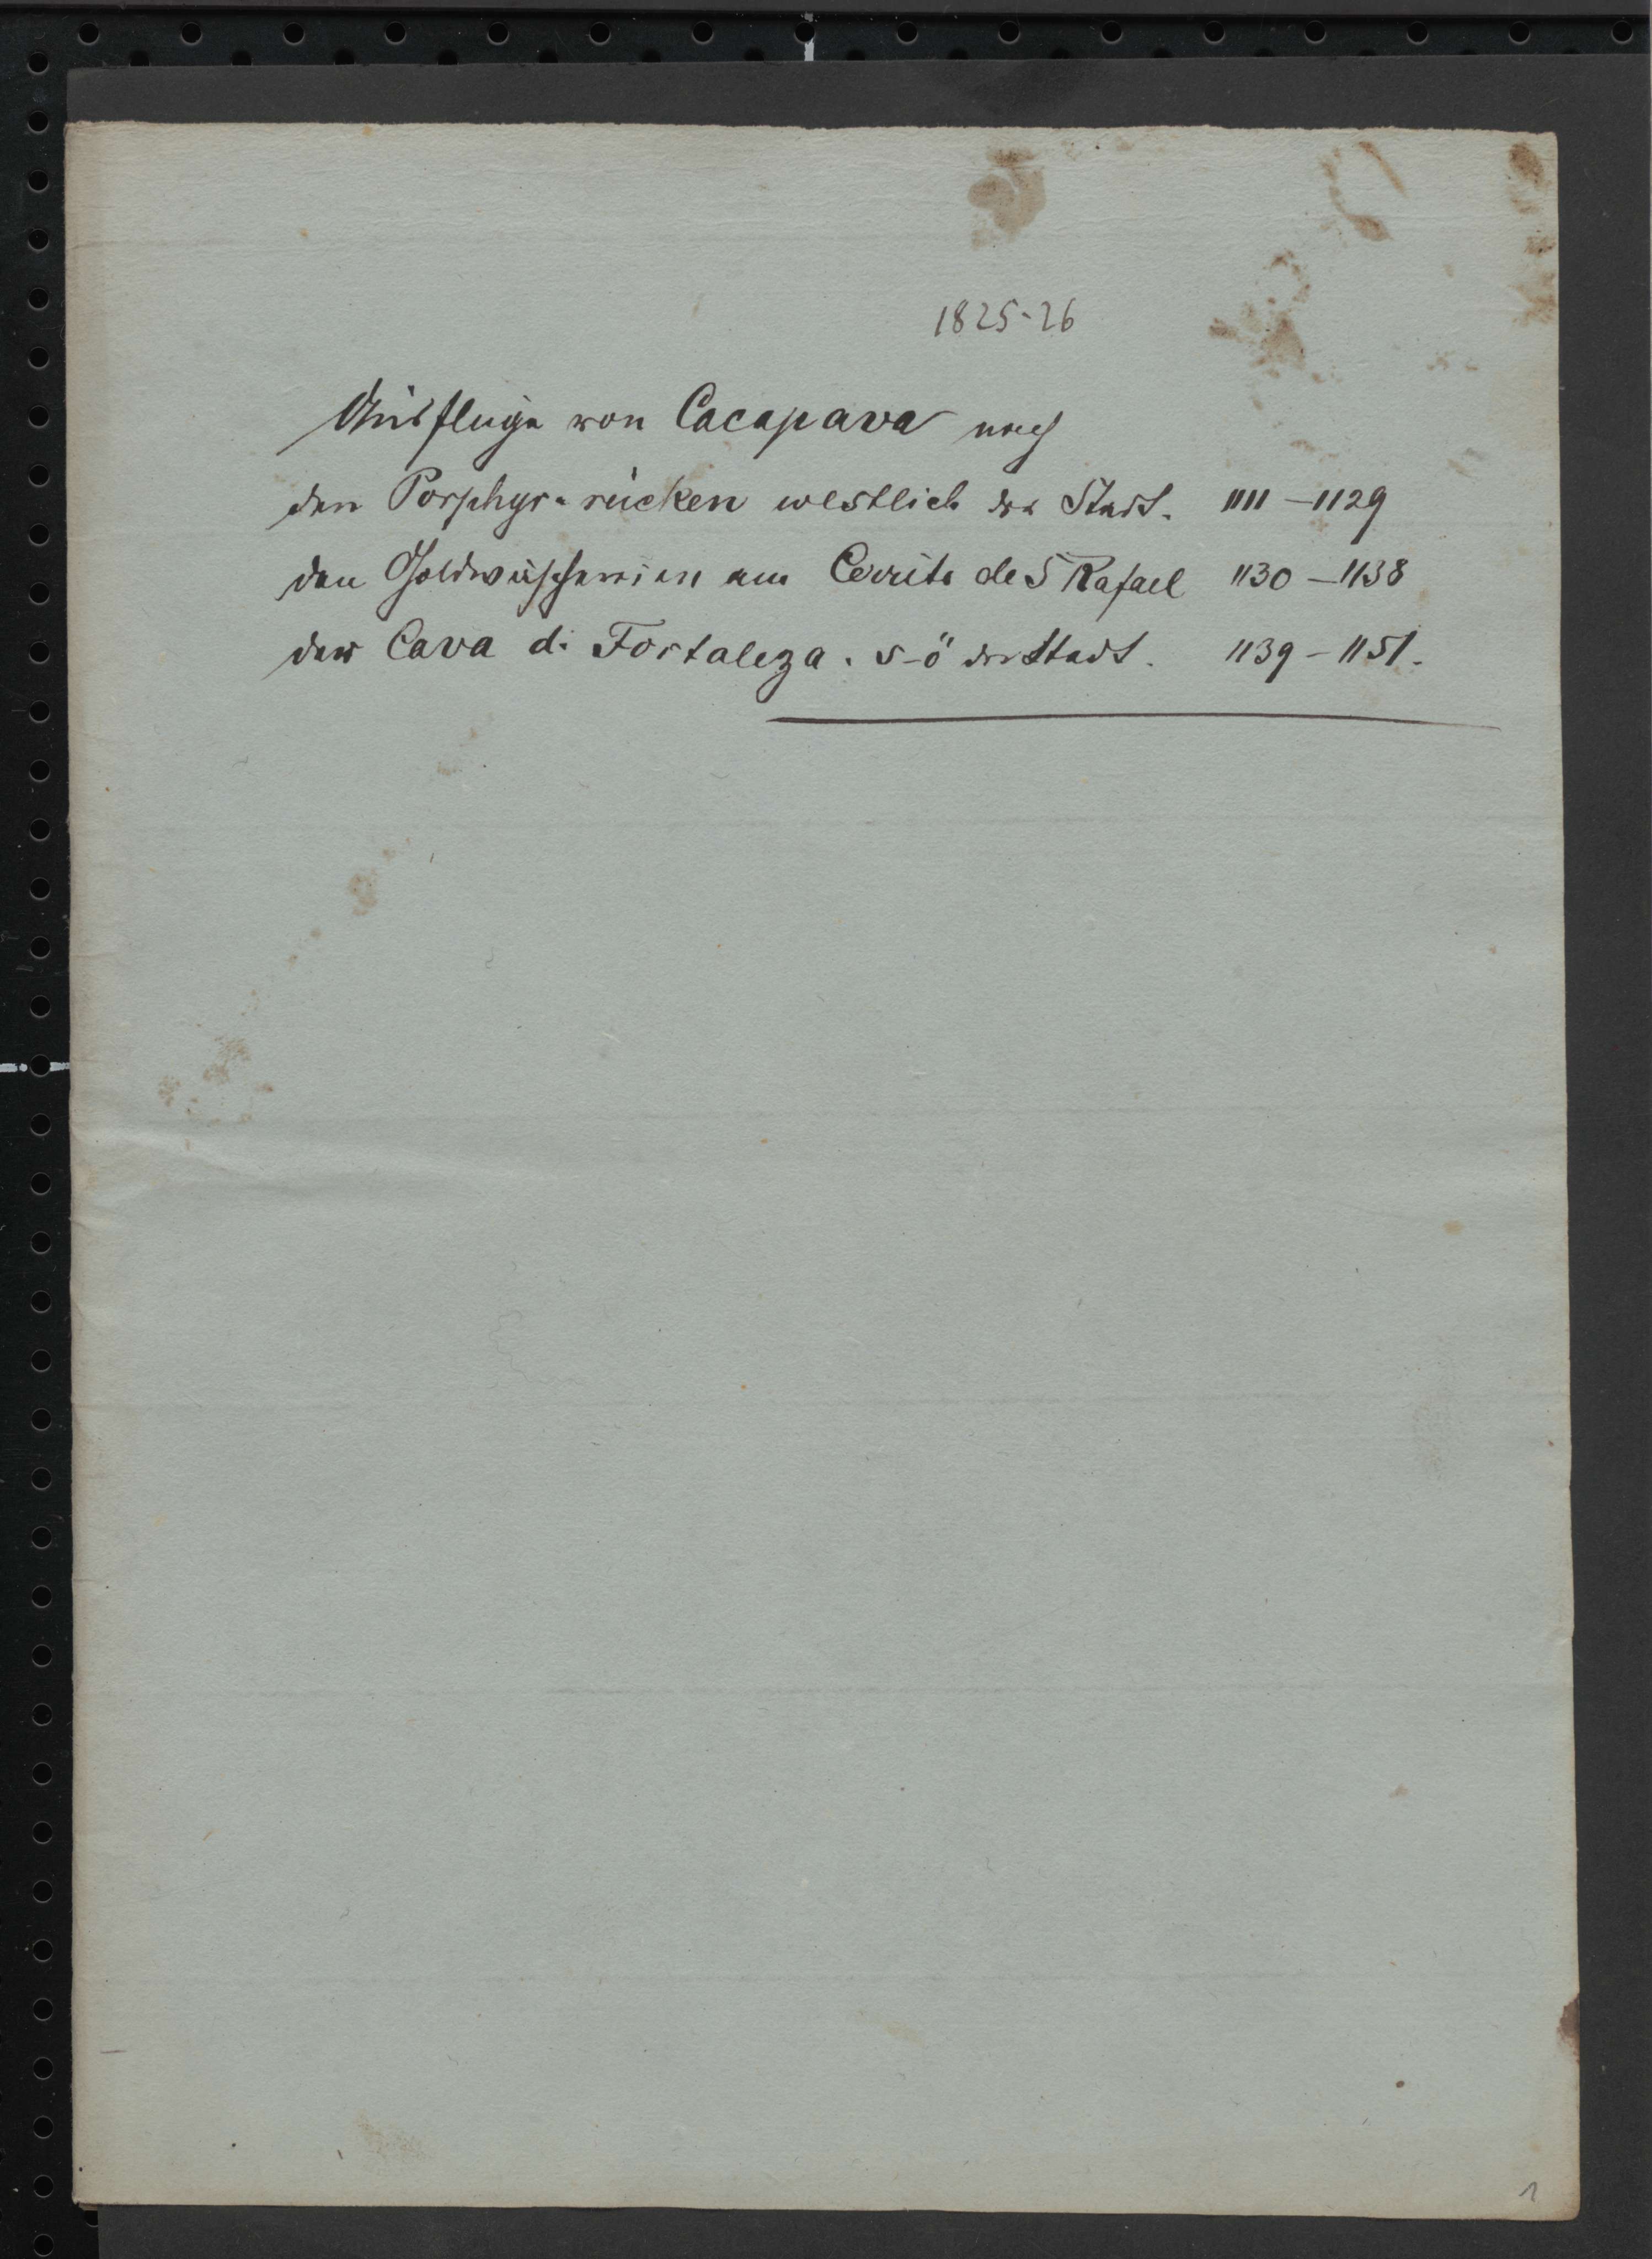 1825-26
Ausfluge von Cacapava nach
den Porphyr-rücken westlich der Stadt. 1111-1129
den Goldwäschereien am Cerrito de S Rafael 1130-1138
der Cava di Fortaleza. s-ö der Stadt. 1139-1151.
1